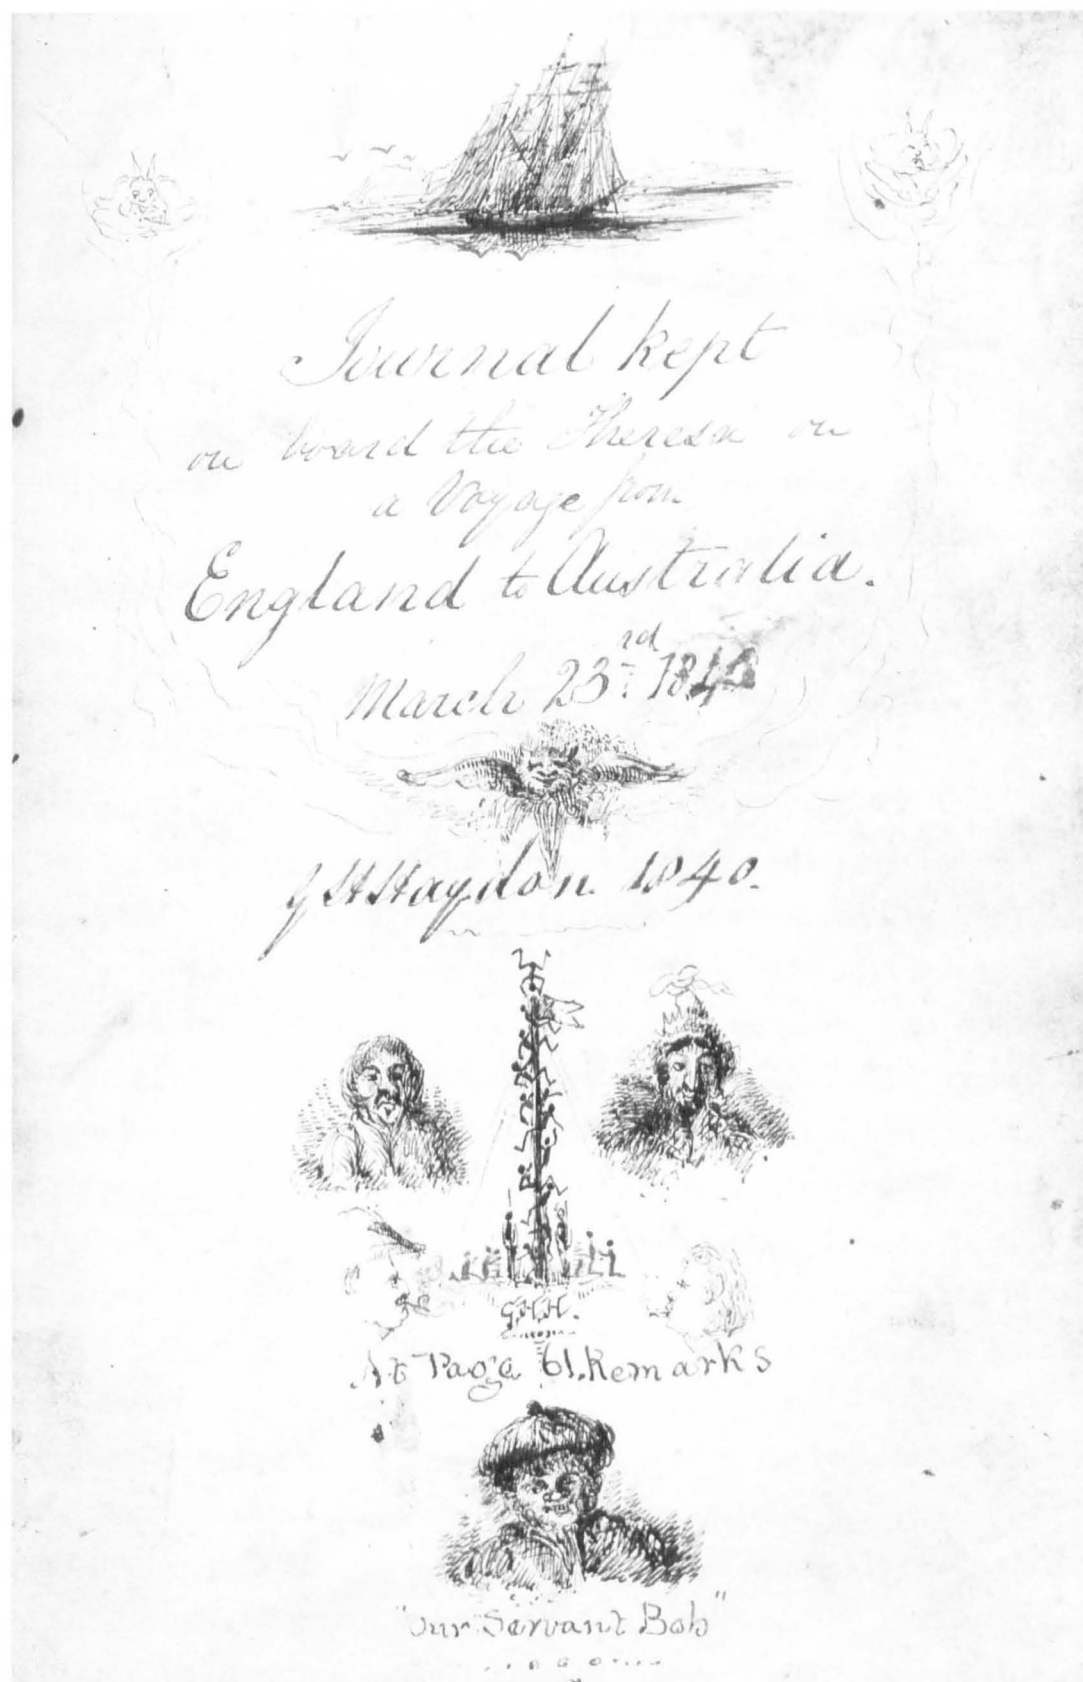 Journal kept
on board the Theresa on
a Voyage from
England to Australia.
March 23rd. 1840
G H Haydon. 1840.
G.H.H.
At Page 61. Remarks
"Our Servant Bob"